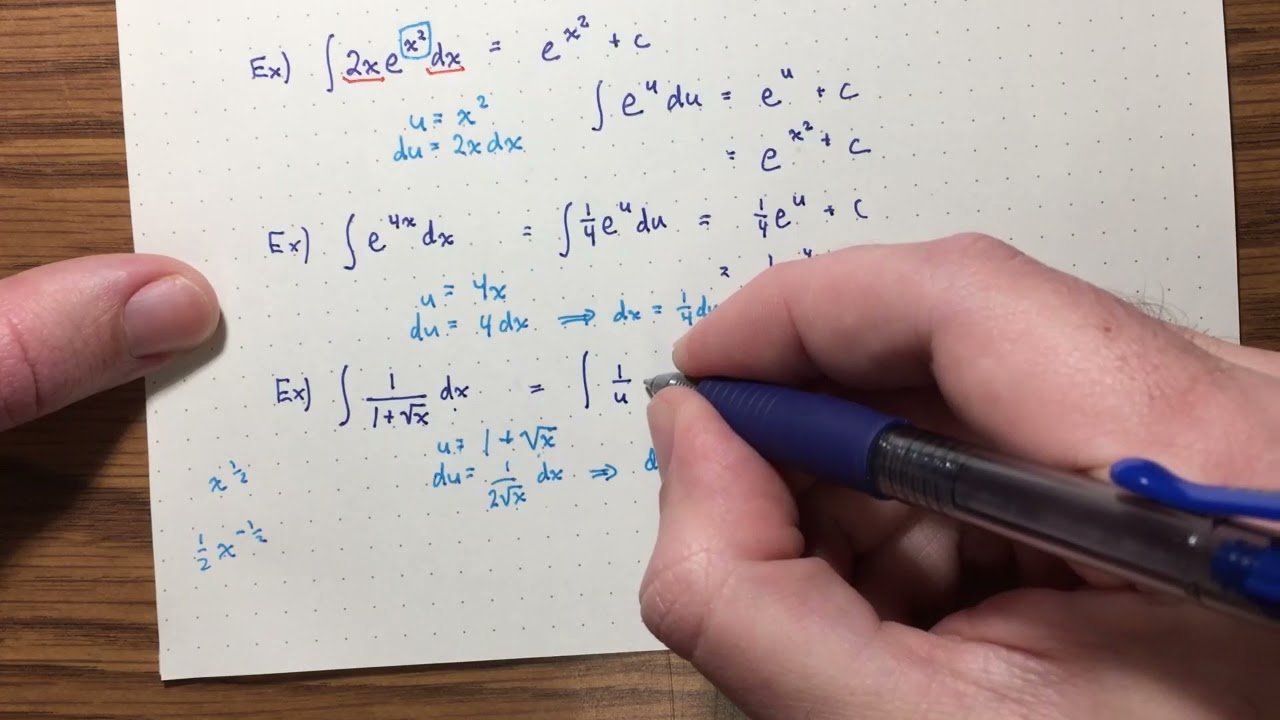 Ex) ∫ 2x e^{x^2} dx = e^{x^2} + c
u = x^2
∫ e^u du = e^u + c
du = 2x dx
= e^{x^2} + c
Ex) ∫ e^{4x} dx = ∫ 1/4 e^u du = 1/4 e^u + c
u = 4x
du = 4 dx ⟹ dx = 1/4 du
Ex) ∫ 1/(1+√x) dx = ∫ 1/u
u = 1 + √x
x^{1/2}
du = 1/(2√x) dx ⟹ d
1/2 x^{-1/2}